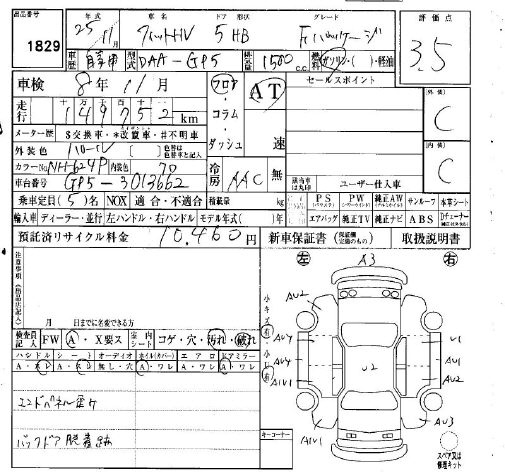 出品番号
1829
年式 車名 ドア 形状 グレード
25 11 フィットHV 5 HB Fパッケージ
車歴 自家用 型式 DAA-GP5 排気量 1500 c.c. 燃料 ガソリン・( )・軽油
評価点
3.5
車検 8年 11月
走行 十 万 千 百 十 一
149752 km
メーター歴 $交換車・*改竄車・#不明車
外装色 パール
色替は色替車と記入
カラーNo. NH-624P 内装色 70
車台番号 GP5-3013662
乗車定員(5)名 NOX 適合・不適合 積載量 kg
輸入車 ディーラー・並行 左ハンドル・右ハンドル モデル年式( )年
フロア・コラム・ダッシュ
AT
速
冷房 AAC 無
セールスポイント
該当車は丸印
ユーザー仕入車
PS PW 純正AW サンルーフ 本革シート
エアバッグ 純正TV 純正ナビ ABS
外装 C
内装 C
預託済リサイクル料金 10,460円
新車保証書 取扱説明書
注意事項
月 日までに名変できる方
検査員記入 FW A・X要ス 室内シート コゲ・穴・汚れ・破れ
ハンドル シート オーディオ ホイル(カバー) エアロ ドアミラー
A・スレ A・スレ 無し・穴 A・ワレ A・ワレ A・ワレ
エンドパネル歪ケ
バックドア脱着跡
キーコーナー
左 A3 右
小キズ
AU2
AU4 U1
AU4 U2 A1U1
A1U1 AU2
A1U1 AU3
スペア又は修理キット